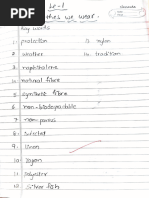 Ls-1
Clothes we wear.
Key words
1. protection 13. nylon
2. weather 14. tradition
3. naphthalene
4. natural fibre
5. synthetic fibre
6. non-biodegradable
7. non-porous
8.
9. linen
10. rayon
11. polyester
12. silver fish